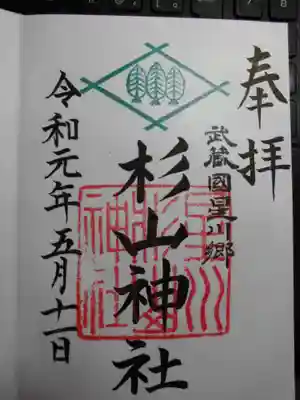 奉拝
武蔵國星川郷
杉山神社
令和元年五月十一日